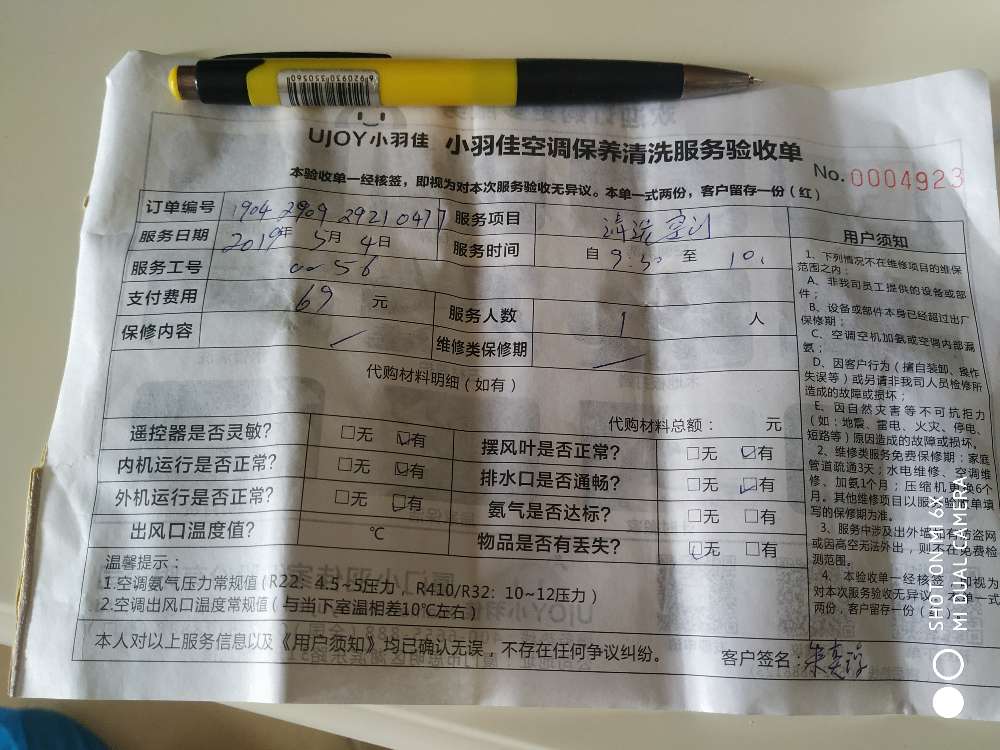 6920930350560
UJOY小羽佳 小羽佳空调保养清洗服务验收单
No.0004923
本验收单一经核签，即视为对本次服务验收无异议。本单一式两份，客户留存一份（红）
订单编号 1904 2909 2921 0477 服务项目
服务日期 2019年 5月 4日 服务时间 自 9:50 至 10:
服务工号 0056
支付费用 69 元 服务人数 1 人
保修内容 / 维修类保修期 /
代购材料明细（如有）
代购材料总额： 元
遥控器是否灵敏？ □无 □有 摆风叶是否正常？ □无 □有
内机运行是否正常？ □无 □有 排水口是否通畅？ □无 □有
外机运行是否正常？ □无 □有 氨气是否达标？ □无 □有
出风口温度值？ ℃ 物品是否有丢失？ □无 □有
温馨提示：
1.空调氨气压力常规值（R22：4.5~5压力，R410/R32：10~12压力）
2.空调出风口温度常规值（与当下室温相差10℃左右）
本人对以上服务信息以及《用户须知》均已确认无误，不存在任何争议纠纷。 客户签名：
用户须知
1、下列情况不在维修项目的维保
范围之内：
A、非我司员工提供的设备或部
件；
B、设备或部件本身已经超过出厂
保修期；
C、空调空机加氨或空调内部漏
氨；
D、因客户行为（擅自装卸、操作
失误等）或另请非我司人员检修所
造成的故障或损坏；
E、因自然灾害等不可抗拒力
（如：地震、雷电、火灾、停电、
短路等）原因造成的故障或损坏。
2、维修类服务免费保修期：家庭
管道疏通3天；水电维修、空调维
修、加氨1个月；压缩机更换6个
月。其他维修项目以服务验收单填
写的保修期为准。
3、服务中涉及出外墙如有防盗网
或因高空无法外出，则不在免费检
测范围。
4、本验收单一经核签，即视为
对本次服务验收无异议。本单一式
两份，客户留存一份（红）
SHOT ON MI 6X
MI DUAL CAMERA